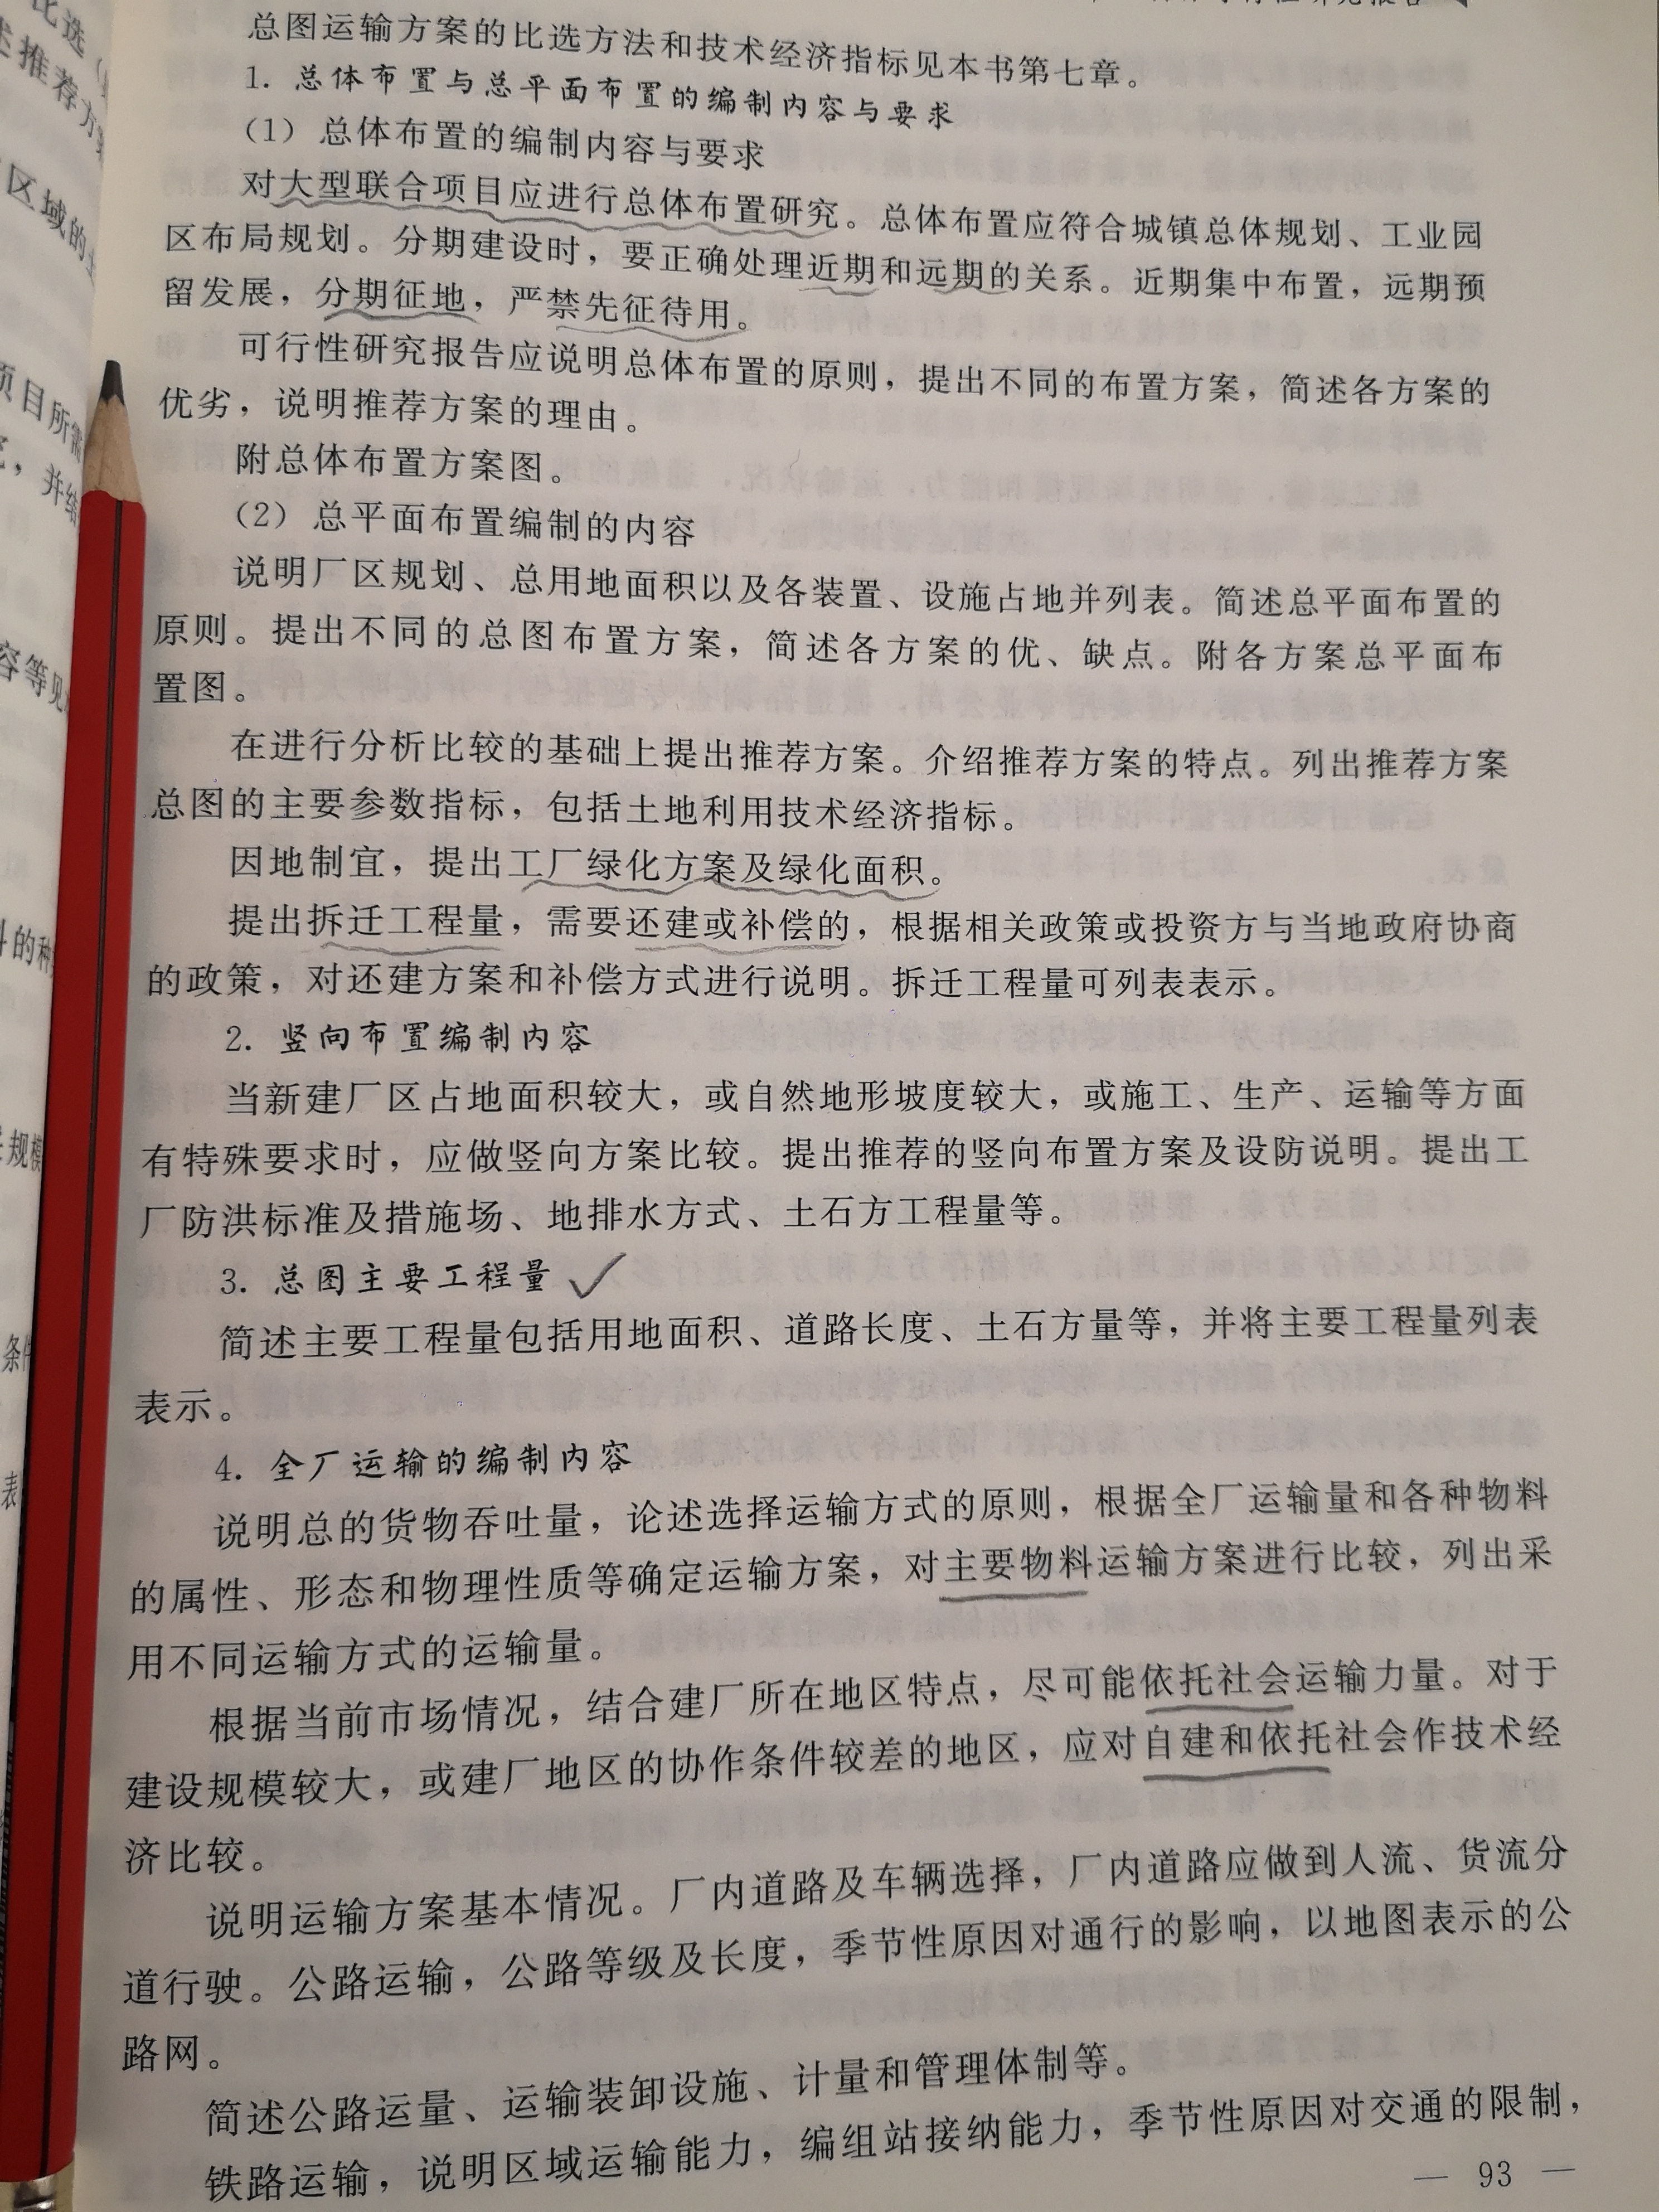 总图运输方案的比选方法和技术经济指标见本书第七章。
1. 总体布置与总平面布置的编制内容与要求
（1）总体布置的编制内容与要求
对大型联合项目应进行总体布置研究。总体布置应符合城镇总体规划、工业园
区布局规划。分期建设时，要正确处理近期和远期的关系。近期集中布置，远期预
留发展，分期征地，严禁先征待用。
可行性研究报告应说明总体布置的原则，提出不同的布置方案，简述各方案的
优劣，说明推荐方案的理由。
附总体布置方案图。
（2）总平面布置编制的内容
说明厂区规划、总用地面积以及各装置、设施占地并列表。简述总平面布置的
原则。提出不同的总图布置方案，简述各方案的优、缺点。附各方案总平面布
置图。
在进行分析比较的基础上提出推荐方案。介绍推荐方案的特点。列出推荐方案
总图的主要参数指标，包括土地利用技术经济指标。
因地制宜，提出工厂绿化方案及绿化面积。
提出拆迁工程量，需要还建或补偿的，根据相关政策或投资方与当地政府协商
的政策，对还建方案和补偿方式进行说明。拆迁工程量可列表表示。
2. 竖向布置编制内容
当新建厂区占地面积较大，或自然地形坡度较大，或施工、生产、运输等方面
有特殊要求时，应做竖向方案比较。提出推荐的竖向布置方案及设防说明。提出工
厂防洪标准及措施场、地排水方式、土石方工程量等。
3. 总图主要工程量
简述主要工程量包括用地面积、道路长度、土石方量等，并将主要工程量列表
表示。
4. 全厂运输的编制内容
说明总的货物吞吐量，论述选择运输方式的原则，根据全厂运输量和各种物料
的属性、形态和物理性质等确定运输方案，对主要物料运输方案进行比较，列出采
用不同运输方式的运输量。
根据当前市场情况，结合建厂所在地区特点，尽可能依托社会运输力量。对于
建设规模较大，或建厂地区的协作条件较差的地区，应对自建和依托社会作技术经
济比较。
说明运输方案基本情况。厂内道路及车辆选择，厂内道路应做到人流、货流分
道行驶。公路运输，公路等级及长度，季节性原因对通行的影响，以地图表示的公
路网。
简述公路运量、运输装卸设施、计量和管理体制等。
铁路运输，说明区域运输能力，编组站接纳能力，季节性原因对交通的限制，
— 93 —